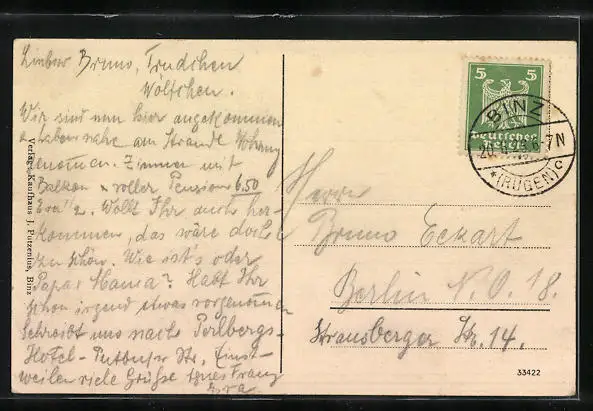 Lieber Bruno, Trudchen
Wölfchen.
Wir sind nun hier angekommen
u. haben nahe am Strande Wohnung
genommen. Zimmer mit
Balkon u. voller Pension 6.50
Wollt Ihr auch her-
kommen, das wäre doch
zu schön. Wie ist's oder
Papa u. Mama? Habt Ihr
schon irgend etwas vorgenommen
Schreibt uns nach Perlbergs-
Hotel - Putbuser Str. Einst-
weilen viele Grüsse Franz
Verlag: Kaufhaus J. Putzenius, Binz
5 5
Deutsches
Reich
BINZ
6-7N
*(RÜGEN)c
Herrn
Bruno Eckart
Berlin N.O. 18.
Strausberger Str. 14.
33422